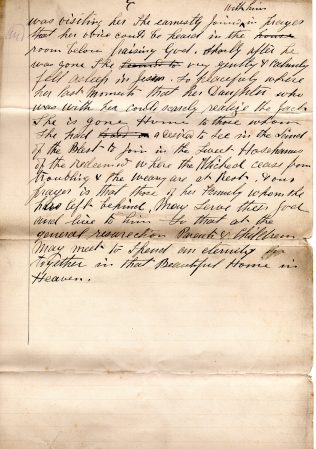 with him
was visiting her She earnestly joined in prayers
that her voice could be heard in the house
room below praising God. Shortly after he
was gone She very gently & calmly
fell asleep in Jesus. So peacefully where
her last moments that her Daughter who
was with her could scarcely realize the fact
She is gone Home to those whom
She had desired to see in the Land
of the Blest to join in the Sweet Hosannas
of the redeemed where the Wicked cease from
Troubling & the weary are at Rest. & our
prayer is that those of her Family whom she
has left behind. May Serve their God
and live to him So that at the
general resurection Parents & Children
May meet to Spend an eternity
together in that Beautiful Home in
Heaven.